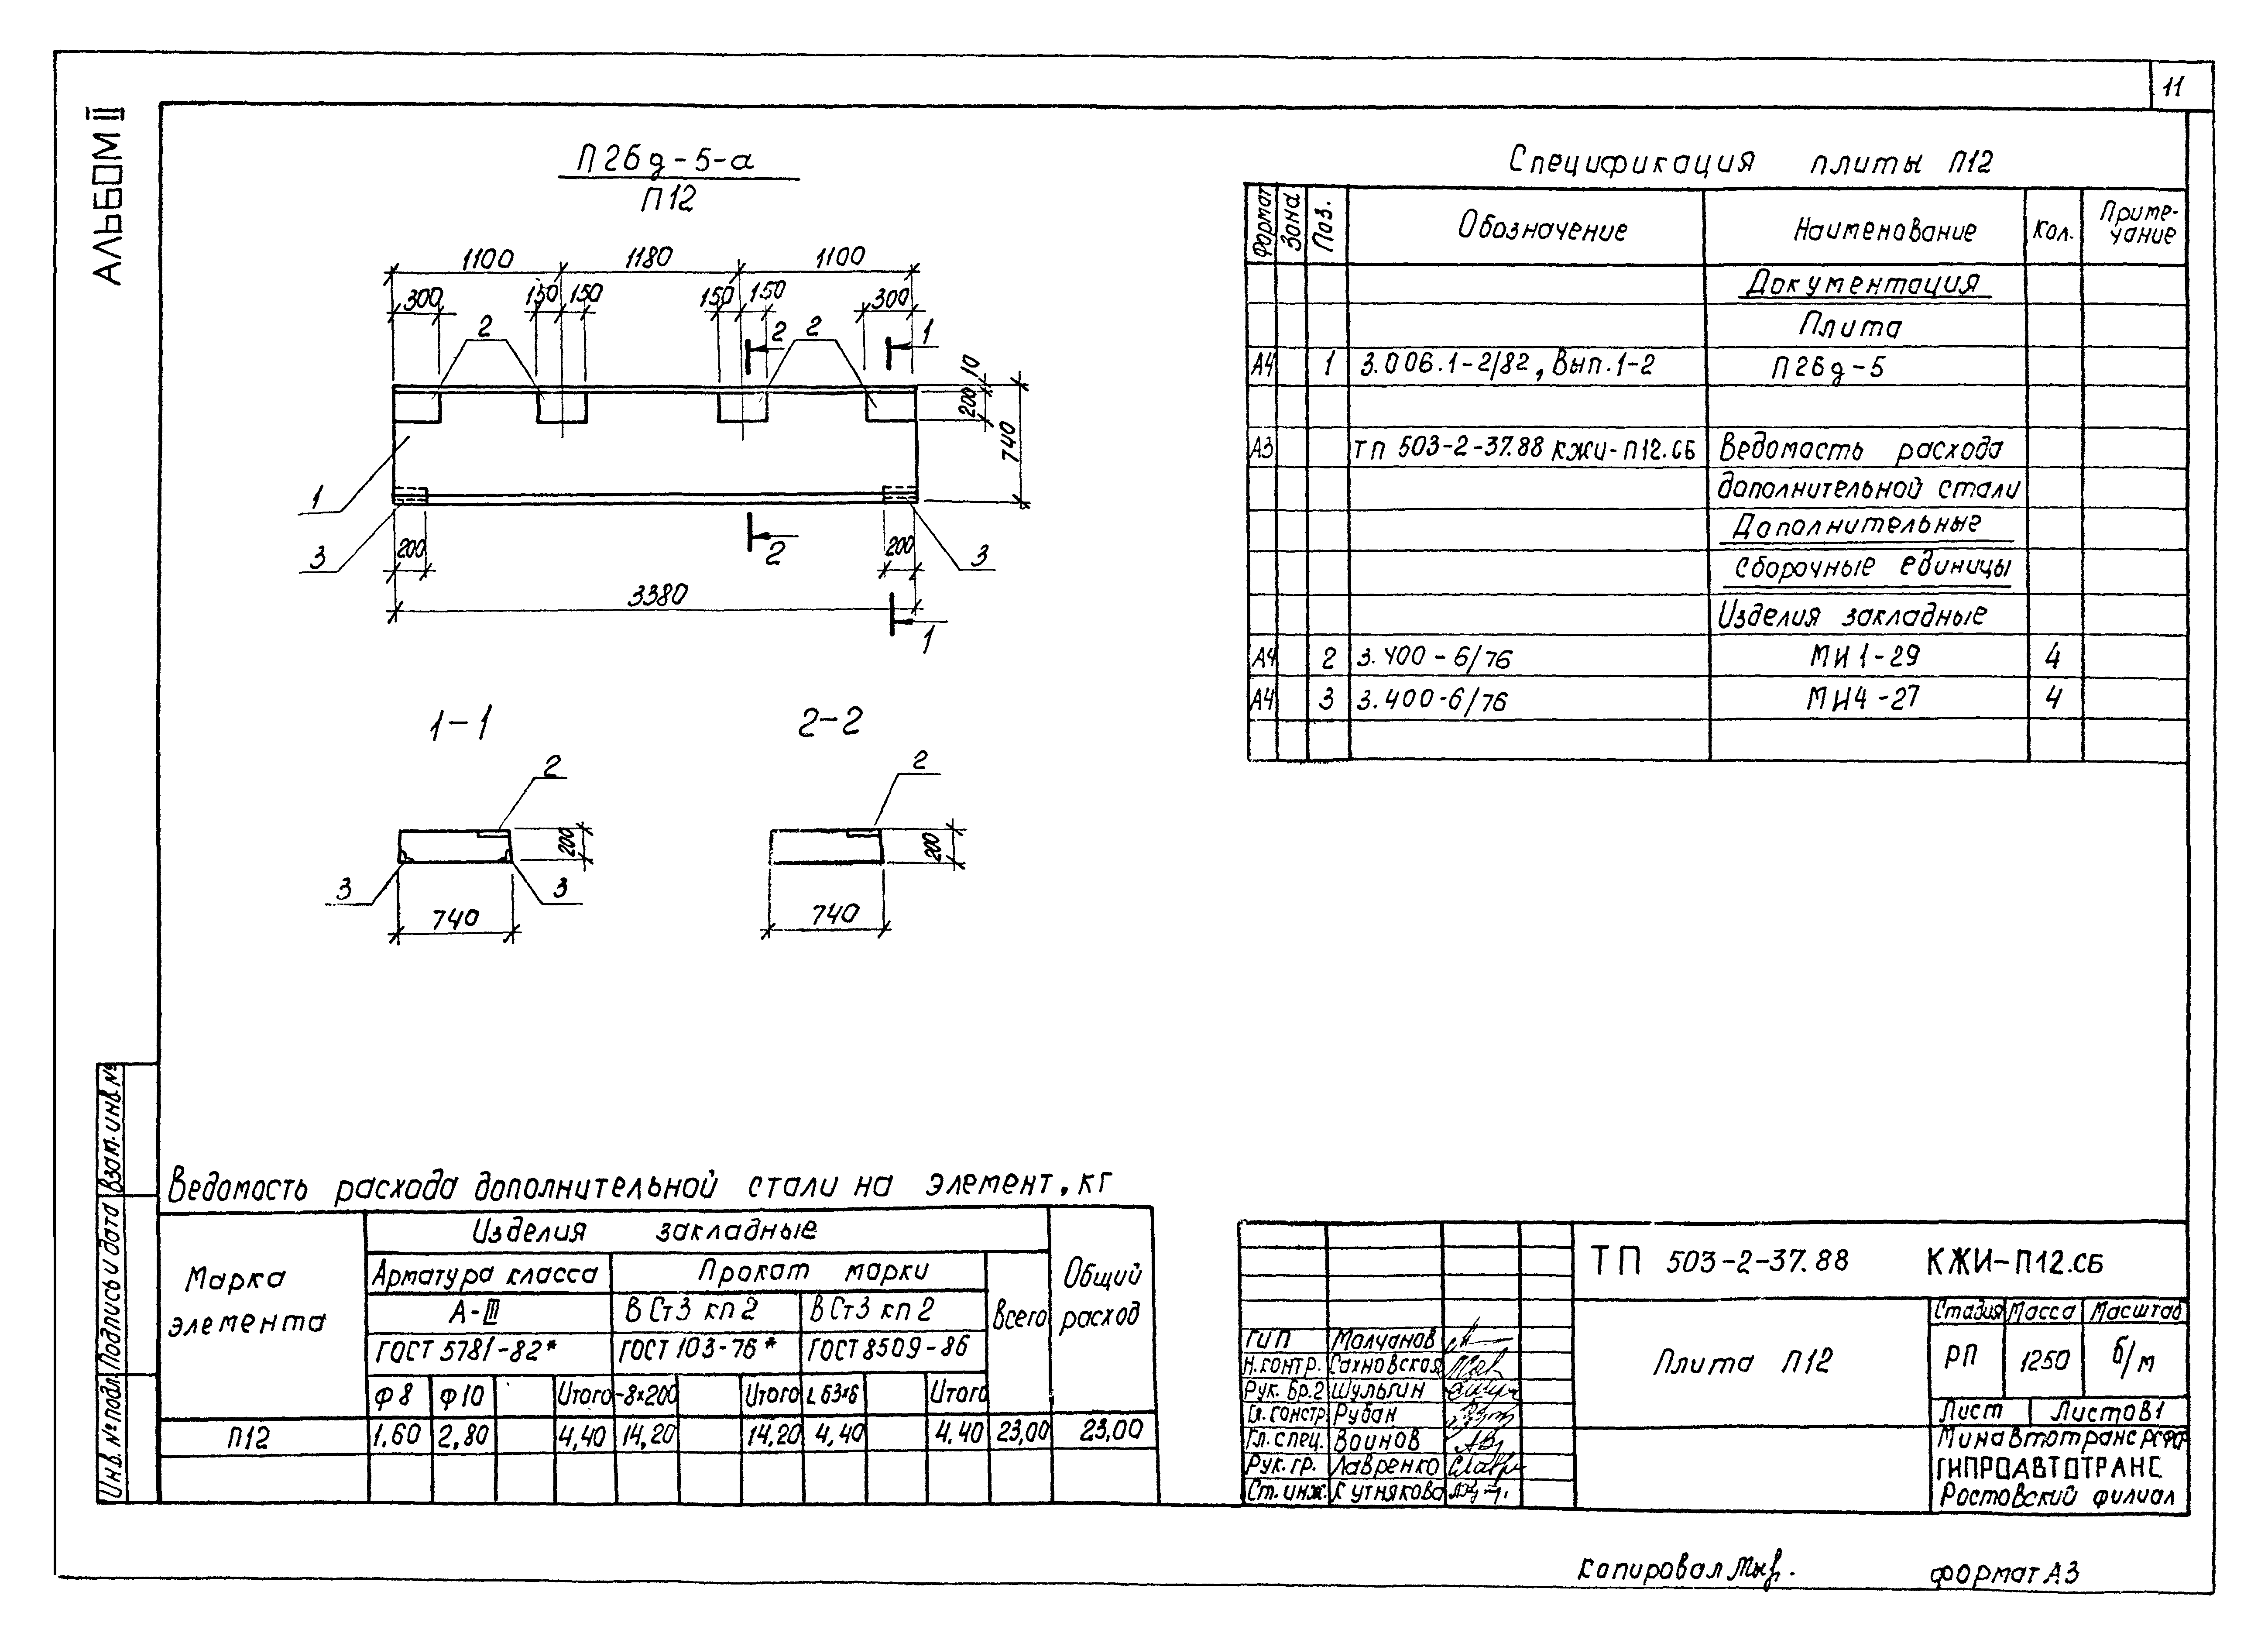 11
АЛЬБОМ II
П26д-5-а
П12
1100 1180 1100
300 150 150 150 150 300
2 2 2 1
10
200
740
1
3 200 2 200 3
3380
1
1-1 2-2
2 2
200 200
3 3
740 740
Спецификация плиты П12
Формат Зона Поз. Обозначение Наименование Кол. Приме-
чание
Документация
Плита
А4 1 3.006.1-2/82, Вып.1-2 П26д-5
А3 ТП 503-2-37.88 КЖИ-П12.СБ Ведомость расхода
дополнительной стали
Дополнительные
сборочные единицы
Изделия закладные
А4 2 3.400-6/76 МИ1-29 4
А4 3 3.400-6/76 МИ4-27 4
Взам. инв. №
Подпись и дата
Инв. № подл.
Ведомость расхода дополнительной стали на элемент, кг
Марка
элемента
Изделия закладные
Общий
расход
Арматура класса Прокат марки
Всего
А-III ВСт3 кп2 ВСт3 кп2
ГОСТ 5781-82* ГОСТ 103-76* ГОСТ 8509-86
Ф8 Ф10 Итого -8х200 Итого L63х6 Итого
П12 1.60 2,80 4,40 14,20 14,20 4,40 4.40 23,00 23,00
ТП 503-2-37.88 КЖИ-П12.СБ
Стадия Масса Масштаб
Плита П12
РП 1250 б/м
Лист Листов 1
ГИП Молчанов
Н.контр. Сахновская
Рук. бр.2 Шульгин
Гл.констр. Рубан
Гл. спец. Воинов
Рук. гр. Лавренко
Ст. инж. Кутнякова
Минавтотранс РСФСР
ГИПРОАВТОТРАНС
Ростовский филиал
Копировал
формат А3